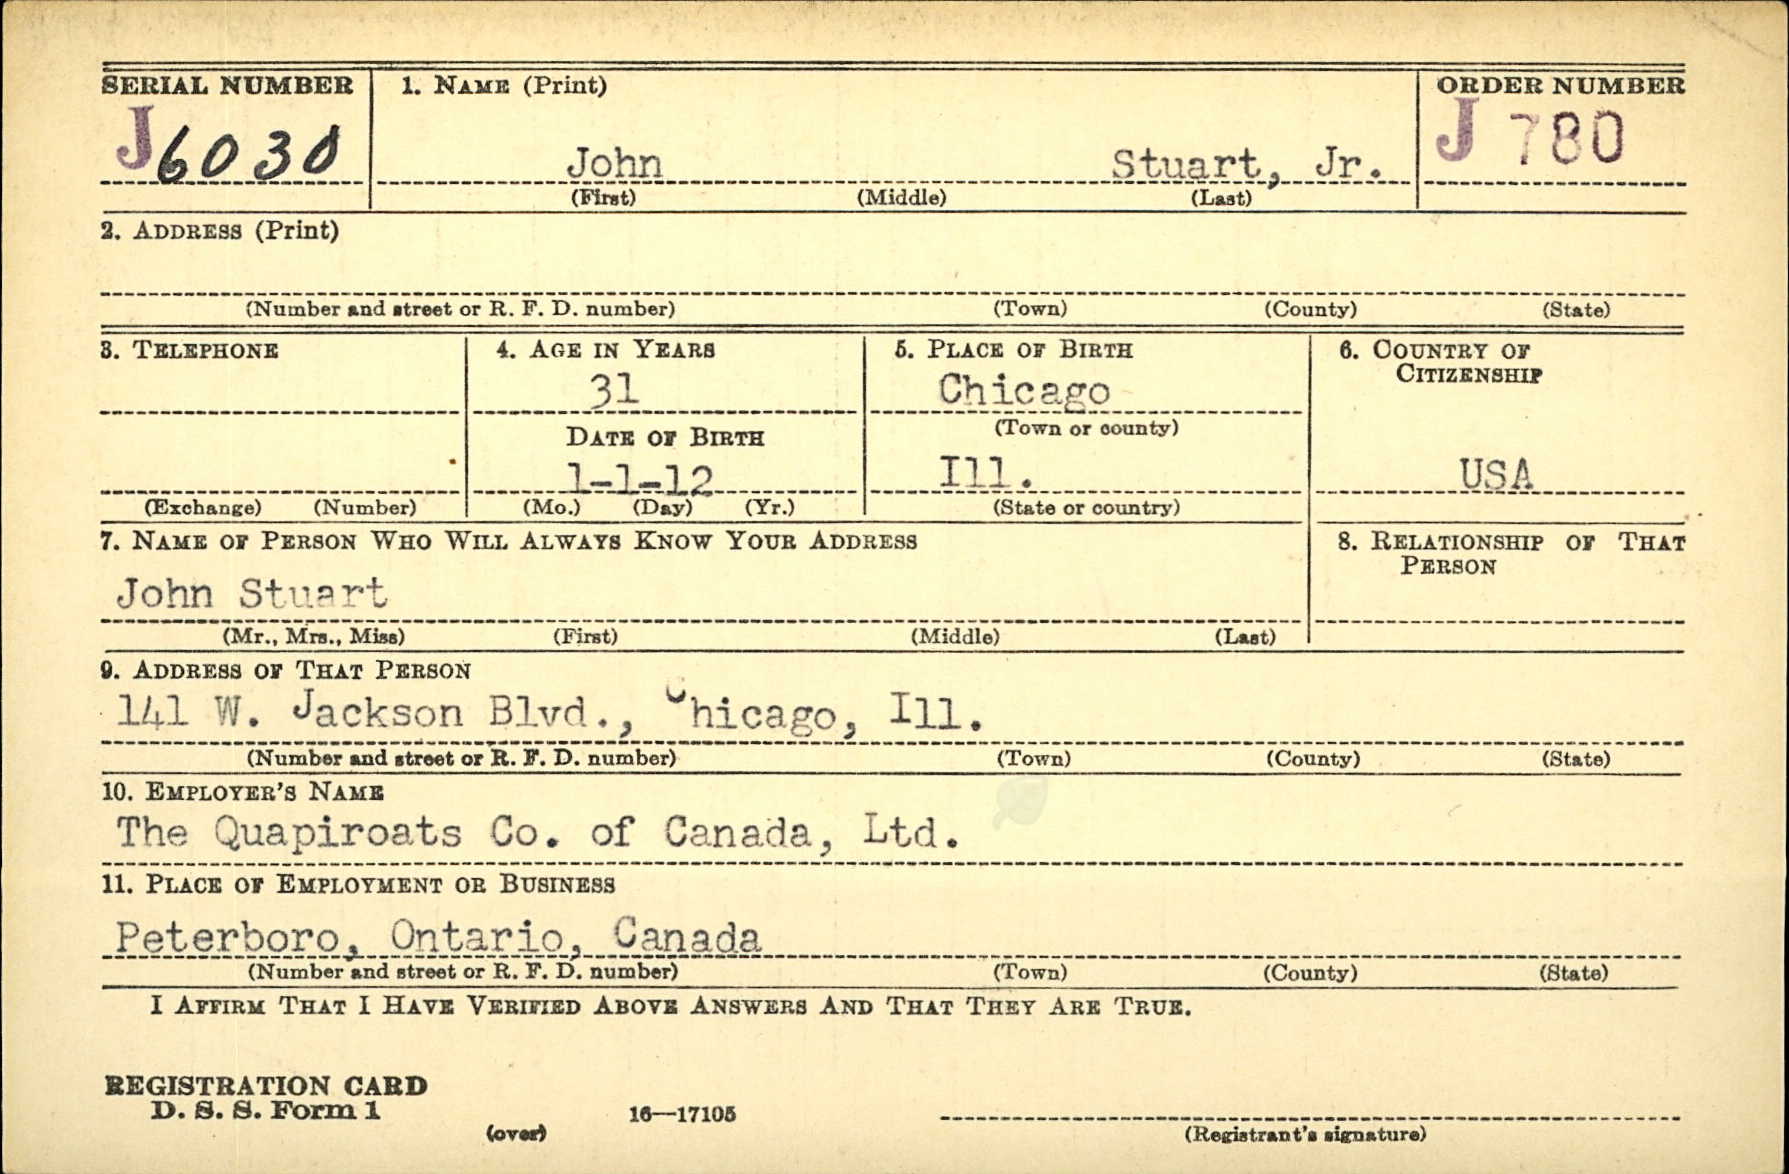 SERIAL NUMBER 1. NAME (Print) ORDER NUMBER
J6030 John Stuart, Jr. J 780
(First) (Middle) (Last)
2. ADDRESS (Print)
(Number and street or R. F. D. number) (Town) (County) (State)
3. TELEPHONE 4. AGE IN YEARS 5. PLACE OF BIRTH 6. COUNTRY OF CITIZENSHIP
31 Chicago
DATE OF BIRTH (Town or county)
1-1-12 Ill. USA
(Exchange) (Number) (Mo.) (Day) (Yr.) (State or country)
7. NAME OF PERSON WHO WILL ALWAYS KNOW YOUR ADDRESS 8. RELATIONSHIP OF THAT PERSON
John Stuart
(Mr., Mrs., Miss) (First) (Middle) (Last)
9. ADDRESS OF THAT PERSON
141 W. Jackson Blvd., Chicago, Ill.
(Number and street or R. F. D. number) (Town) (County) (State)
10. EMPLOYER'S NAME
The Quapiroats Co. of Canada, Ltd.
11. PLACE OF EMPLOYMENT OR BUSINESS
Peterboro, Ontario, Canada
(Number and street or R. F. D. number) (Town) (County) (State)
I AFFIRM THAT I HAVE VERIFIED ABOVE ANSWERS AND THAT THEY ARE TRUE.
REGISTRATION CARD
D. S. S. Form 1 16—17105
(over) (Registrant's signature)